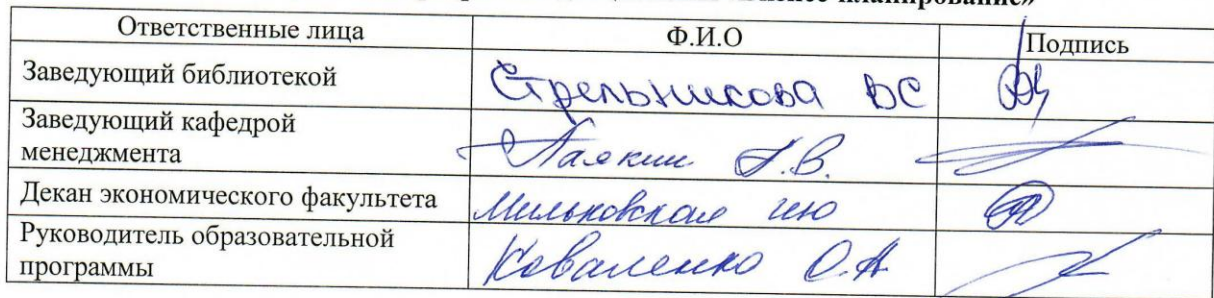 планирование»
Ответственные лица Ф.И.О Подпись
Заведующий библиотекой Стрельникова ВС
Заведующий кафедрой
менеджмента Паякин А.В.
Декан экономического факультета Мильковская ИЮ
Руководитель образовательной
программы Коваленко О.А